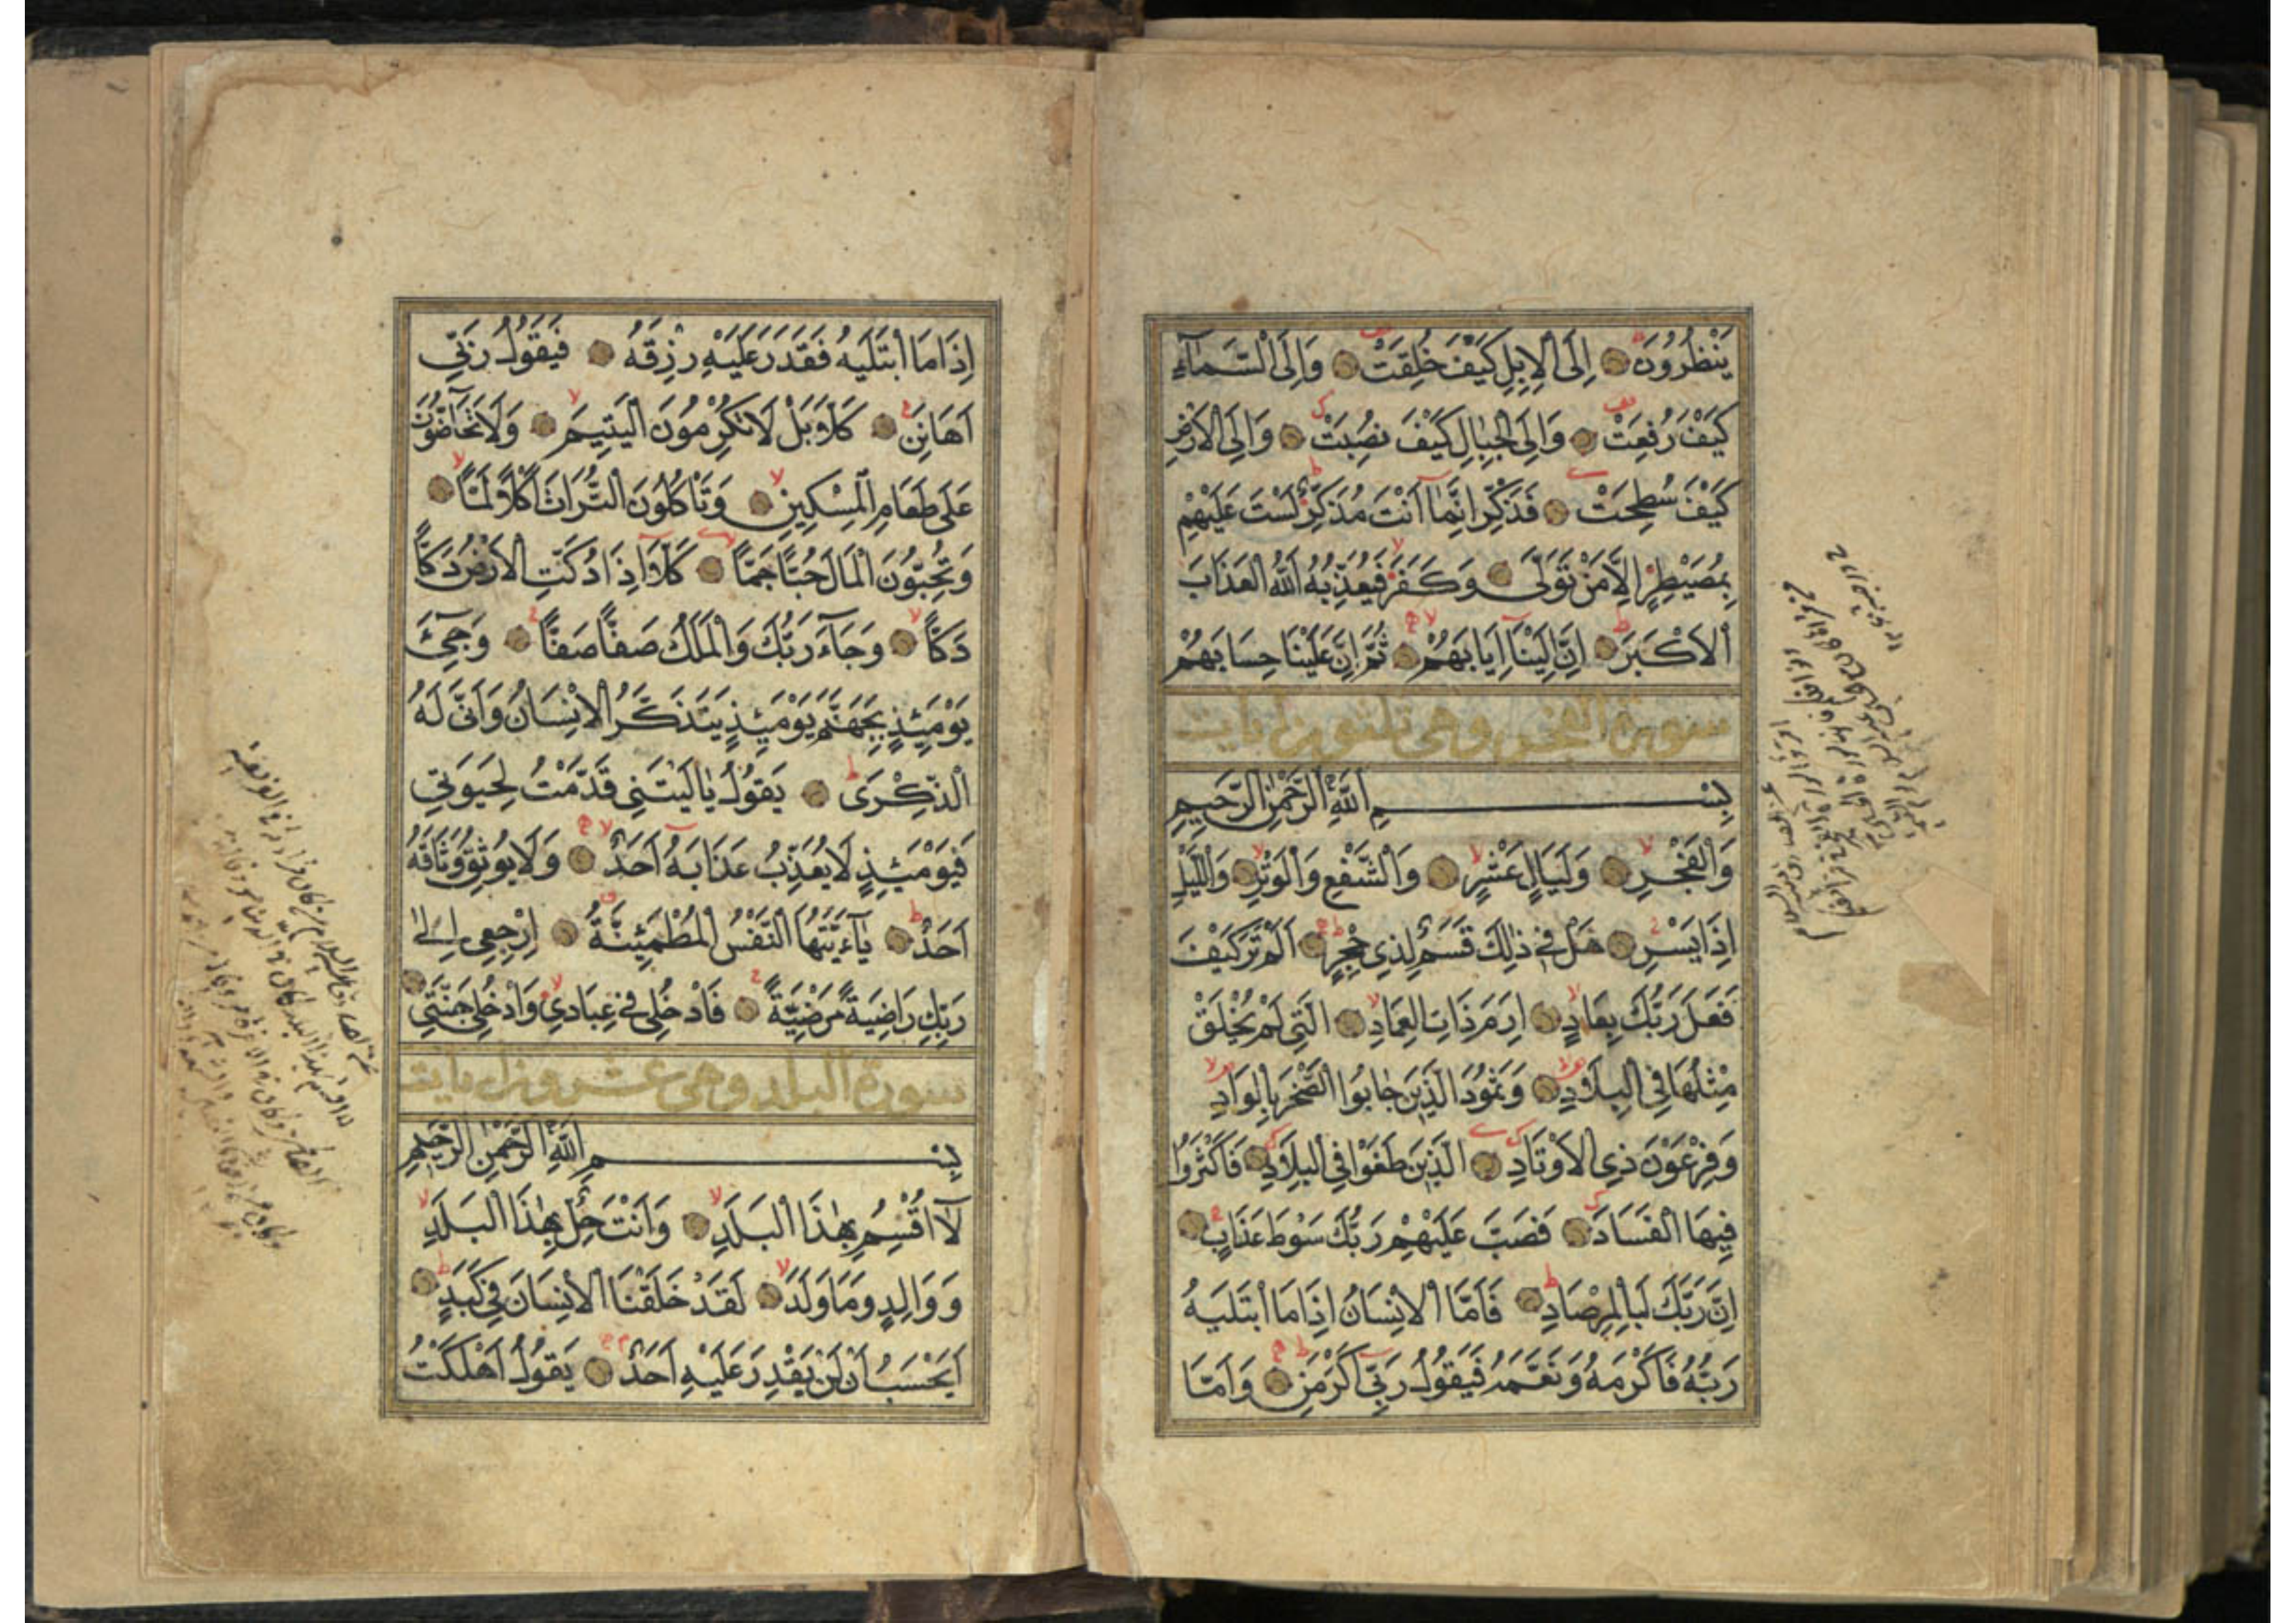 يَنْظُرُونَ اِلَى الْاِبِلِ كَيْفَ خُلِقَتْ وَاِلَى السَّمَآءِ
كَيْفَ رُفِعَتْ وَاِلَى الْجِبَالِ كَيْفَ نُصِبَتْ وَاِلَى الْاَرْضِ
كَيْفَ سُطِحَتْ فَذَكِّرْ اِنَّمَآ اَنْتَ مُذَكِّرٌ لَسْتَ عَلَيْهِمْ
بِمُصَيْطِرٍ اِلَّا مَنْ تَوَلّٰى وَكَفَرَ فَيُعَذِّبُهُ اللّٰهُ الْعَذَابَ
الْاَكْبَرَ اِنَّ اِلَيْنَآ اِيَابَهُمْ ثُمَّ اِنَّ عَلَيْنَا حِسَابَهُمْ
سورة الفجر وهى ثلثون ايات
بِسْمِ اللّٰهِ الرَّحْمٰنِ الرَّحِيمِ
وَالْفَجْرِ وَلَيَالٍ عَشْرٍ وَالشَّفْعِ وَالْوَتْرِ وَاللَّيْلِ
اِذَا يَسْرِ هَلْ فِي ذٰلِكَ قَسَمٌ لِذِي حِجْرٍ اَلَمْ تَرَ كَيْفَ
فَعَلَ رَبُّكَ بِعَادٍ اِرَمَ ذَاتِ الْعِمَادِ الَّتِي لَمْ يُخْلَقْ
مِثْلُهَا فِي الْبِلَادِ وَثَمُودَ الَّذِينَ جَابُوا الصَّخْرَ بِالْوَادِ
وَفِرْعَوْنَ ذِي الْاَوْتَادِ الَّذِينَ طَغَوْا فِي الْبِلَادِ فَاَكْثَرُوا
فِيهَا الْفَسَادَ فَصَبَّ عَلَيْهِمْ رَبُّكَ سَوْطَ عَذَابٍ
اِنَّ رَبَّكَ لَبِالْمِرْصَادِ فَاَمَّا الْاِنْسَانُ اِذَا مَا ابْتَلَيهُ
رَبُّهُ فَاَكْرَمَهُ وَنَعَّمَهُ فَيَقُولُ رَبِّي اَكْرَمَنِ وَاَمَّا
اِذَا مَا ابْتَلَيهُ فَقَدَرَ عَلَيْهِ رِزْقَهُ فَيَقُولُ رَبِّي
اَهَانَنِ كَلَّا بَلْ لَا تُكْرِمُونَ الْيَتِيمَ وَلَا تَحَآضُّونَ
عَلَى طَعَامِ الْمِسْكِينِ وَتَاْكُلُونَ التُّرَاثَ اَكْلًا لَمًّا
وَتُحِبُّونَ الْمَالَ حُبًّا جَمًّا كَلَّآ اِذَا دُكَّتِ الْاَرْضُ دَكًّا
دَكًّا وَجَآءَ رَبُّكَ وَالْمَلَكُ صَفًّا صَفًّا وَجِيٓءَ
يَوْمَئِذٍ بِجَهَنَّمَ يَوْمَئِذٍ يَتَذَكَّرُ الْاِنْسَانُ وَاَنّٰى لَهُ
الذِّكْرَى يَقُولُ يَا لَيْتَنِي قَدَّمْتُ لِحَيَوتِي
فَيَوْمَئِذٍ لَا يُعَذِّبُ عَذَابَهُٓ اَحَدٌ وَلَا يُوثِقُ وَثَاقَهُٓ
اَحَدٌ يَآءَيَّتُهَا النَّفْسُ الْمُطْمَئِنَّةُ اِرْجِعِي اِلٰى
رَبِّكِ رَاضِيَةً مَرْضِيَّةً فَادْخُلِي فِي عِبَادِي وَادْخُلِي جَنَّتِي
سورة البلد وهى عشرون ايات
بِسْمِ اللّٰهِ الرَّحْمٰنِ الرَّحِيمِ
لَآ اُقْسِمُ بِهٰذَا الْبَلَدِ وَاَنْتَ حِلٌّ بِهٰذَا الْبَلَدِ
وَوَالِدٍ وَمَا وَلَدَ لَقَدْ خَلَقْنَا الْاِنْسَانَ فِي كَبَدٍ
اَيَحْسَبُ اَنْ لَنْ يَقْدِرَ عَلَيْهِ اَحَدٌ يَقُولُ اَهْلَكْتُ